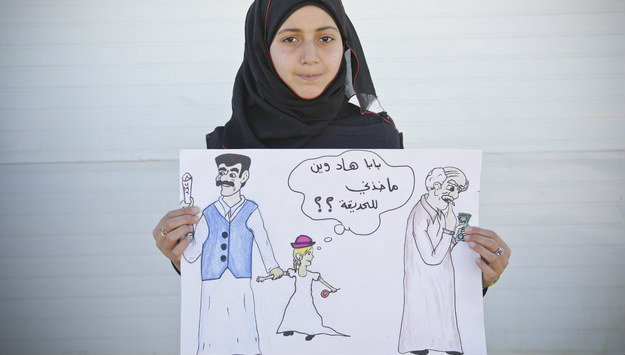 بابا هاد وين
ماخذني
للحديقة ؟؟